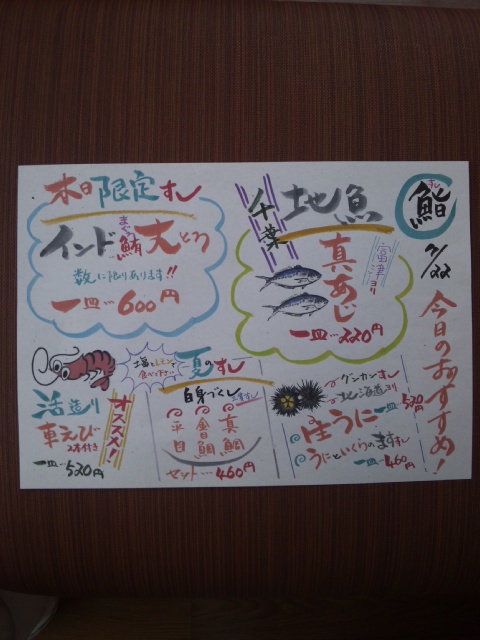 すし
鮨
7/22
今日のおすすめ!
千葉
地魚
富津ヨリ
真あじ
一皿…220円
本日限定すし
まぐろ
インド鮪大とろ
数に限りあります!!
一皿…600円
グンカンすし
北海道ヨリ
生うに一皿520円
うにといくらのますすし
一皿…460円
夏のすし
白身づくし
真鯛
金目鯛
平目
セット…460円
活造り
車えび
2本付き
一皿…520円
オススメ!